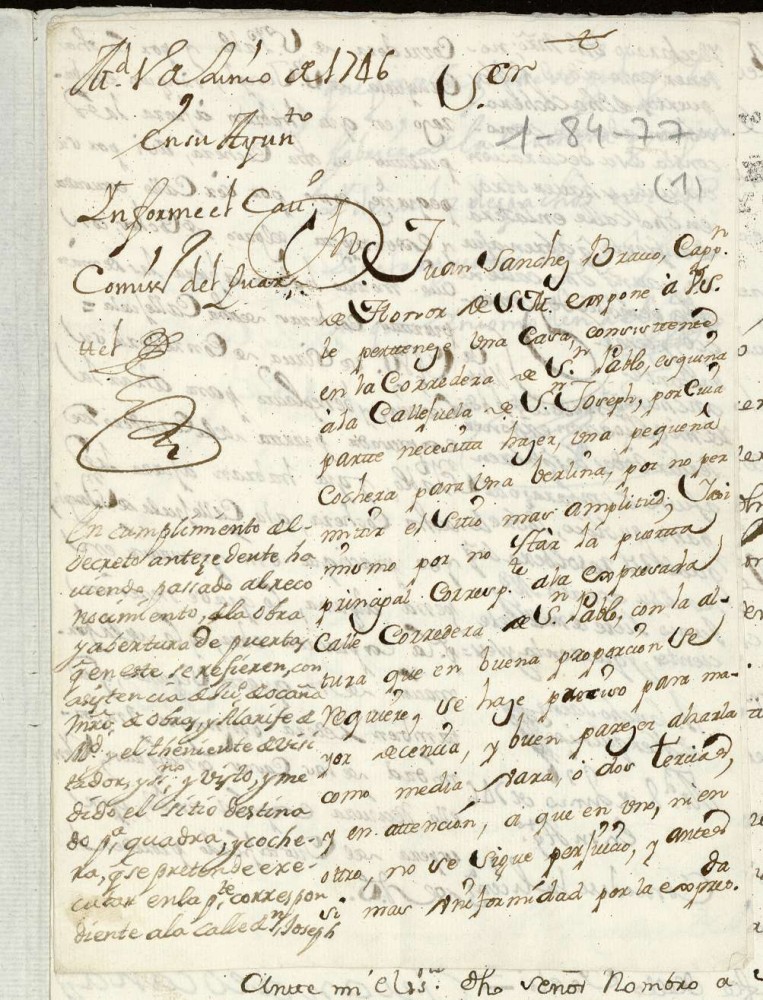 M.d 1.º de Junio de 1746
en su Ayun.to
Informe el Cau.º
Comiss.º del Quar
tel
S.or
1-84-77
(1)
Juan Sanchez Brauo, Capp.n
de Honor de S.M. expone à V.S.
le perteneze una Casa, consistente
en la Corredera de S.n Pablo, esquina
à la Callejuela de S.n Joseph, por cuia
parte necesita hazer, una pequeña
Cochera para una berlina, por no per
mitir el Sitio mas amplitud. Y assi
mismo por no estàr la puerta
principal Corresp.te a la expresada
Calle Corredera de S.n Pablo, con la al
tura que en buena proporcion se
requiere, se haze preciso para ma-
yor decencia, y buen parezer alzarla
como media Vara, ò dos tercias,
y en attención, a que en uno, ni en
otro, no se sigue perjuicio, y antes
si mas Vniformidad por la expres.da
En cumplimiento del
decreto antezedente, ha
uiendo passado al reco
nocimiento, de la obra
y abertura de puerta,
q.e en este se refieren, con
asistencia de de Ocaña
Mro. de Obras, y Alarife de
M.d y el theniente de Visi
tador, y y visto, y me
dido el sitio destina
do p.a quadra, y coche-
ra, q.e se pretende exe-
cutar en la p.te correspon
diente a la calle de S.n Joseph
Ante mi el ss.no dho señor Nombro a